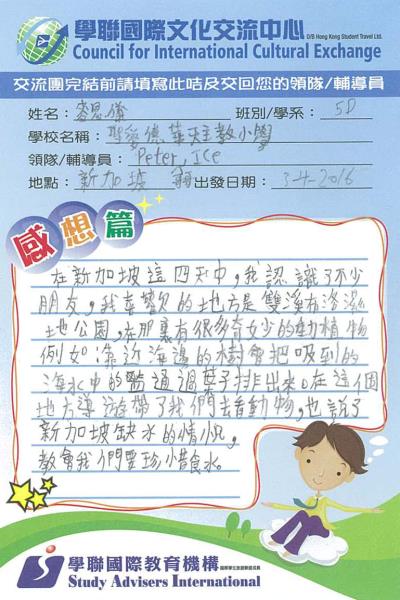 學聯國際文化交流中心 D/B Hong Kong Student Travel Ltd.
Council for International Cultural Exchange
交流團完結前請填寫此咭及交回您的領隊/輔導員
姓名： 班別/學系：5D
學校名稱：聖愛德華天主教小學
領隊/輔導員：Peter, Ice
地點：新加坡 出發日期：3-4-2016
感想篇
在新加坡這四天中，我認識了不少
朋友，我喜歡的地方是雙溪布洛濕
地公園，在那裏有很多奇妙的動植物
例如：靠近海邊的樹會把吸到的
海水中的鹽通過葉子排出來。在這個
地方導遊帶了我們去看動物，也說了
新加坡缺水的情況，
教會我們要珍惜食水。
學聯國際教育機構
Study Advisers International